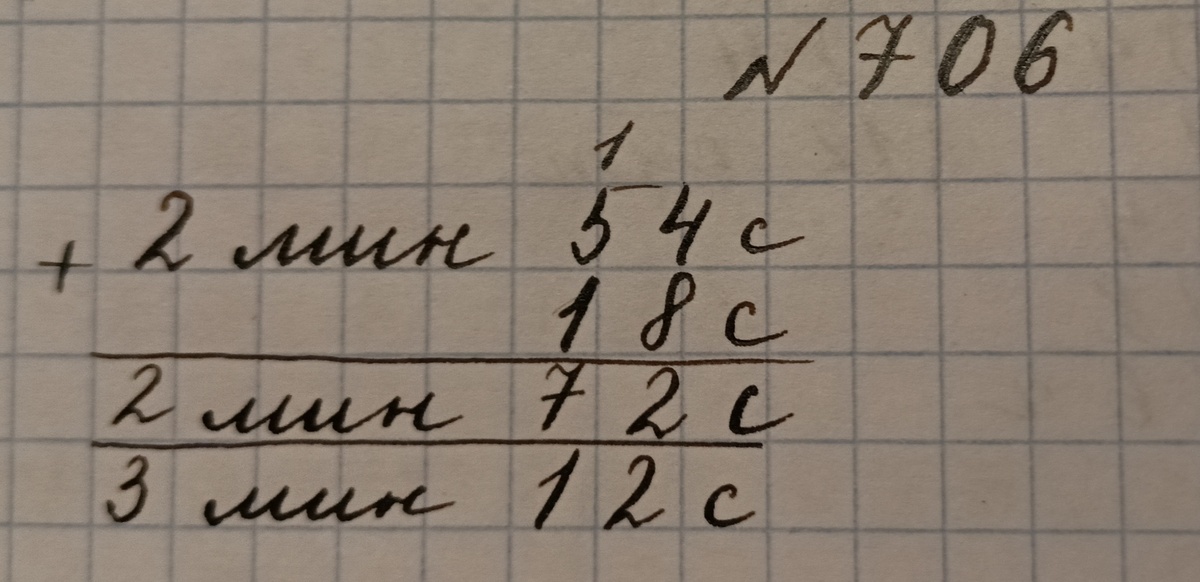 № 706
1
+ 2 мин 54 с
18 с
2 мин 72 с
3 мин 12 с